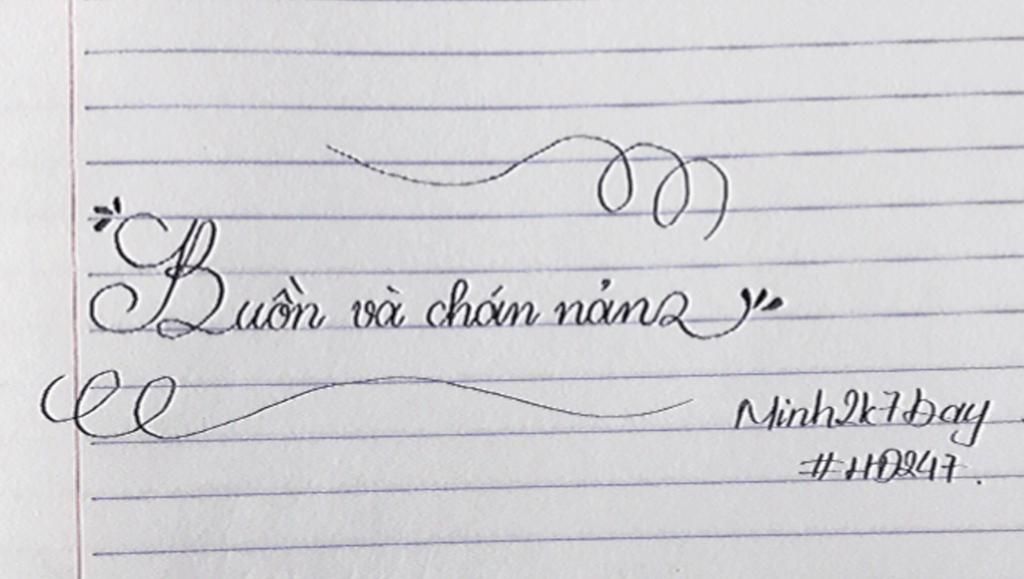 Buồn và chán nản
Minh2k7Day
#HD247.